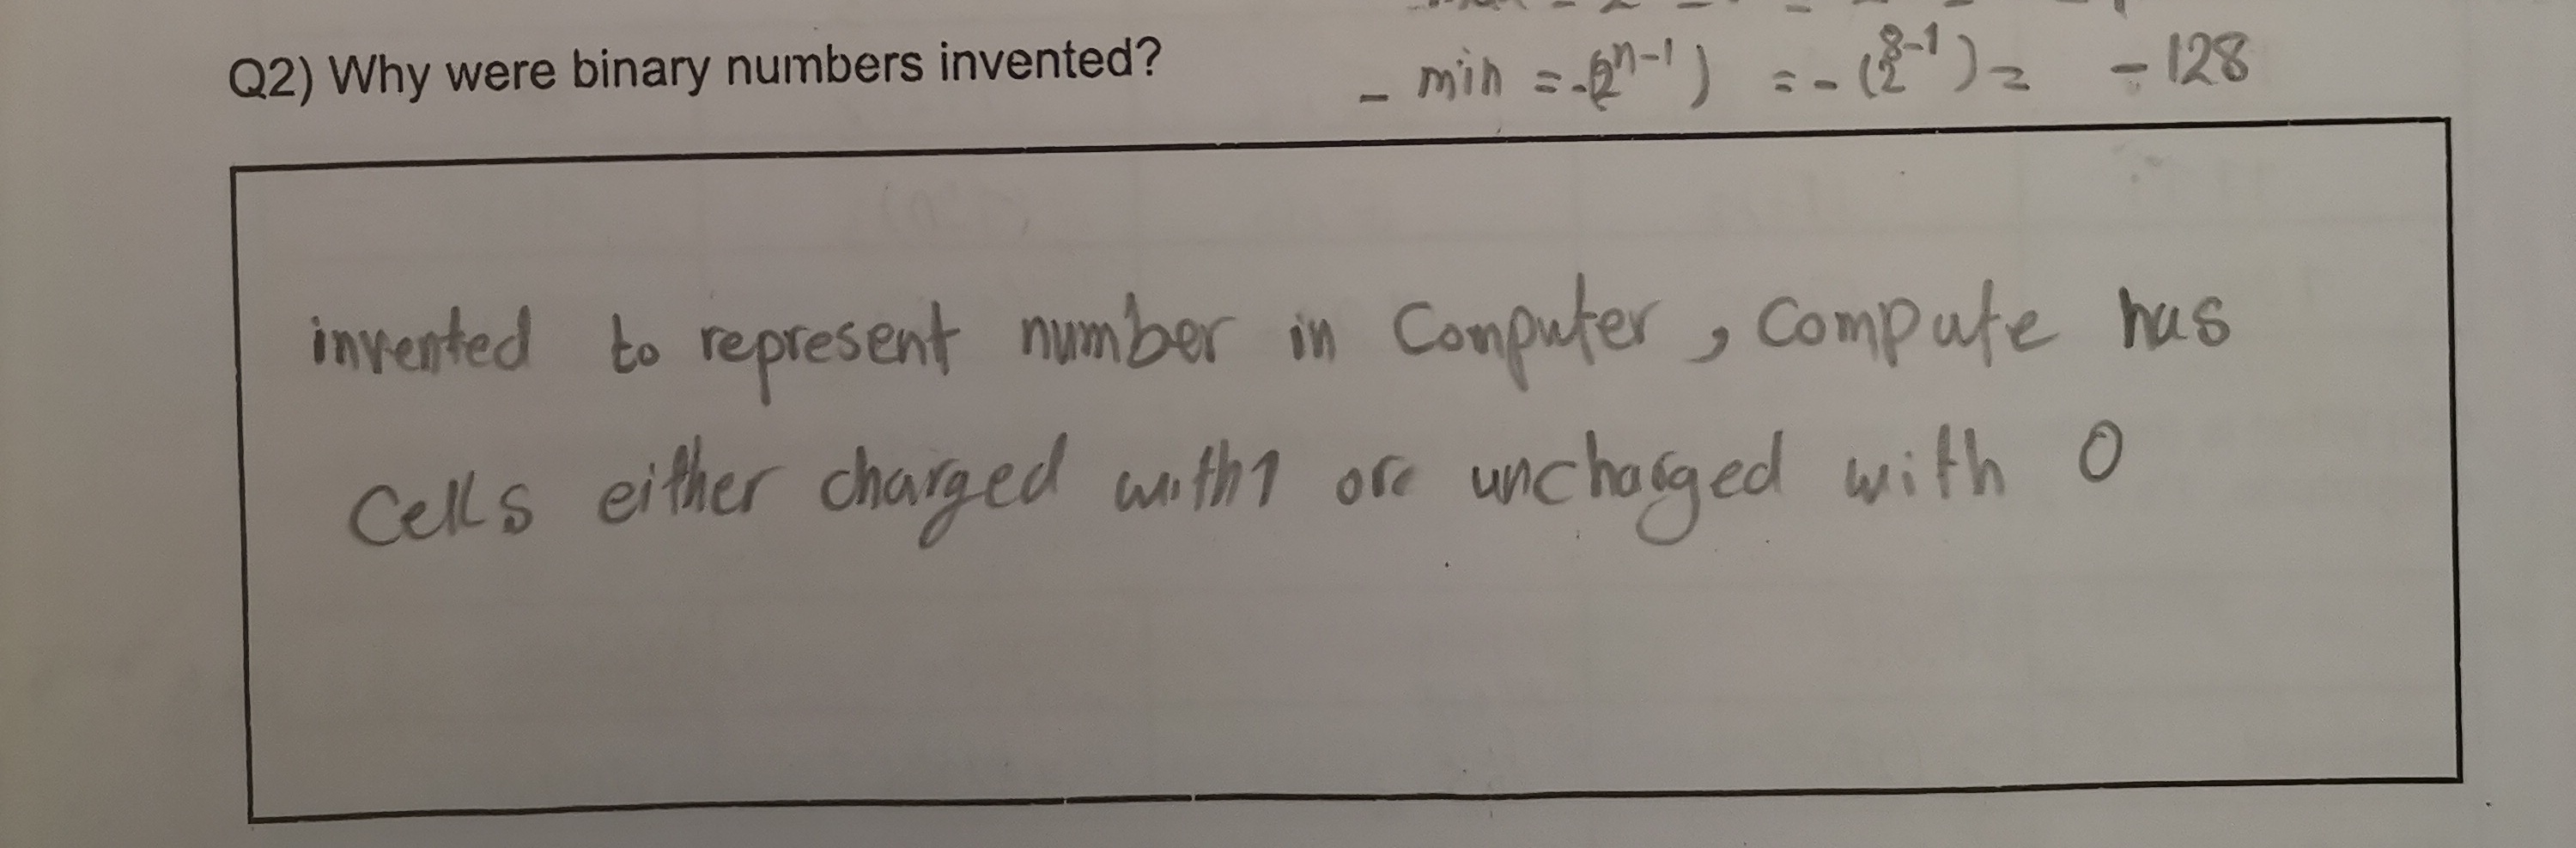 Q2) Why were binary numbers invented?
- min = -(2^n-1) = -(2^8-1) = -128
invented to represent number in Computer, Compute has
Cells either charged with 1 or uncharged with 0